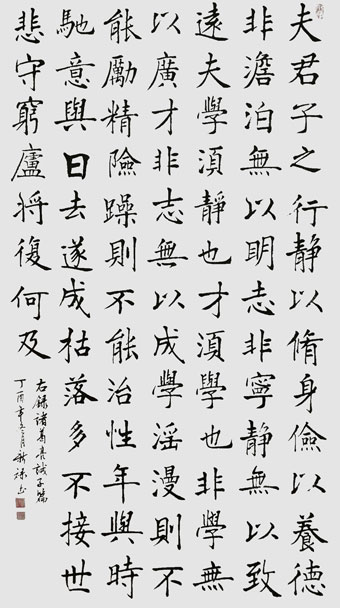 夫君子之行靜以脩身儉以養德
非澹泊無以明志非寧靜無以致
遠夫學湏靜也才湏學也非學無
以廣才非志無以成學滛漫則不
能勵精險躁則不能治性年與時
馳意與日去遂成枯落多不接世
悲守窮廬將復何及
右錄諸葛亮誡子篇
丁酉年五月